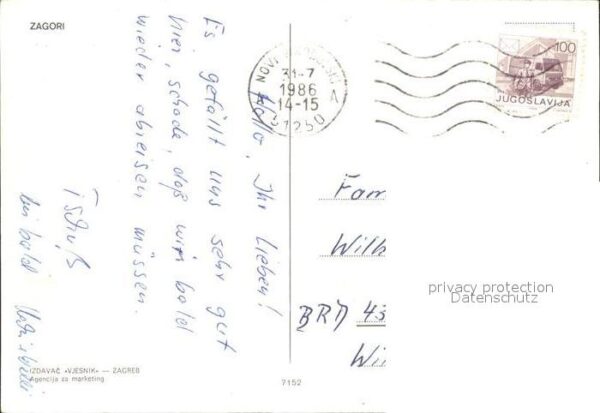 ZAGORI
Hallo, Ihr Lieben!
Es gefällt uns sehr gut
hier, schade, daß wir bald
wieder abreisen müssen.
Tschüß
bis bald
NOVI
31-7
1986
14-15
A
51250
100
JUGOSLAVIJA
Fam
Wilh
BRD 43
Wi
privacy protection
Datenschutz
IZDAVAČ »VJESNIK« — ZAGREB
Agencija za marketing
7152